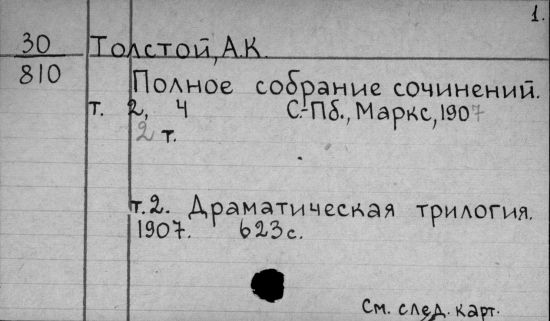 1.
30 Толстой, А.К.
810
Полное собрание сочинений.
т. 2, 4 С.-Пб., Маркс, 1907
2 т.
т.2. Драматическая трилогия.
1907. 623с.
См. след. карт.